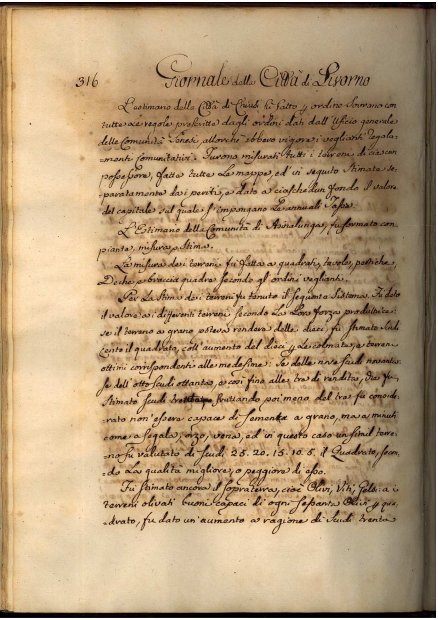 316 Giornale della Città di Livorno
L'estimario della Città di Chiusi fu fatto p ordine Sovrano con
tutte le regole prescritte dagli ordini dati dall'Ufizio generale
delle Comunità Senesi allorchè ebbero vigore i veglianti Regola-
menti Comunitativi. Furono misurati tutti i terreni di ciascun
possessore, fatte tutte le mappe, ed in seguito Stimate se-
paratamente dai periti, e dato a ciaschedun fondo il valore
del capitale sul quale s'impongano le annuali Tasse
L'Estimario della Comunità di Asinalunga, fu formato con
pianta, misura e Stima.
La misura dei terreni fu fatta a quadrati, tavole, pertiche,
Deche, e braccia quadre secondo gli ordini veglianti.
Per la Stima dei terreni fu tenuto il seguente Sistema. Fu dato
il valore ai differenti terreni secondo la loro forza produttrice:
se il terreno a grano poteva rendere delle dieci, fu Stimato Scudi
Cento il quadrato, coll'aumento del dieci p le colmate, e terreni
ottimi corrispondenti alle medesime: Se delle nove scudi novanta,
se dell'otto scudi ottanta, e così fino alle tre di rendita, che fu
Stimato scudi trenta, fruttando poi meno del tre fu conside-
rato non essere capace di sementa a grano, ma a minuti
come a segala, orzo, vena, ed in questo caso un simil terre-
no fu valutato di Scudi 25. 20. 15. 10. 5. il Quadrato, secon-
do la qualità migliore, o peggiore di esso.
Fu Stimato ancora il sopraterra, cioè Olivi, Viti, Gelsi: ai
terreni olivati buoni capaci di ogni sessanta Olivi p qua-
drato, fu dato un'aumento a ragione di Scudi trenta